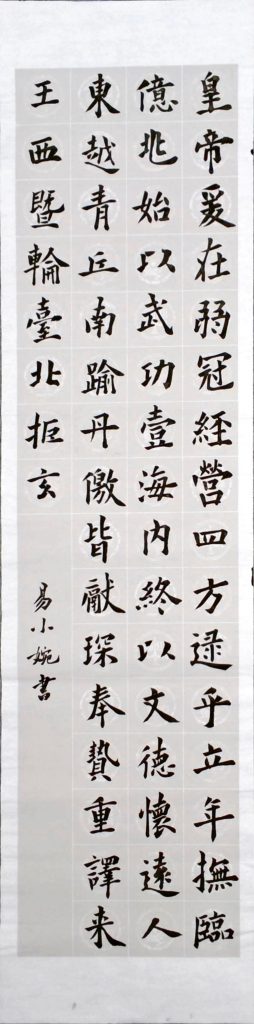 皇帝爰在弱冠經營四方逮乎立年撫臨
億兆始以武功壹海内終以文德懷遠人
東越青丘南踰丹徼皆獻琛奉贄重譯来
王西暨輪臺北拒玄
易小婉書